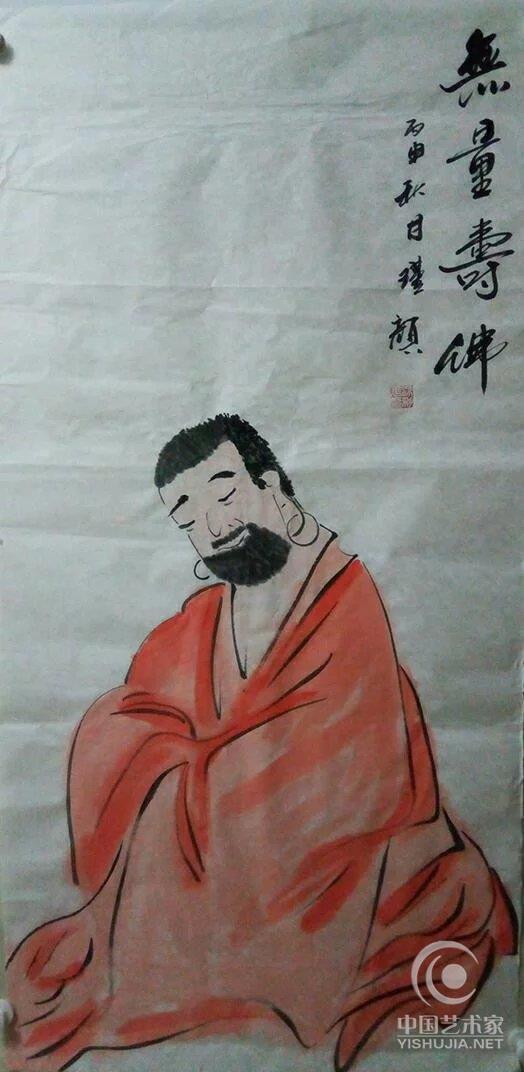 無量壽佛
丙申秋月瑾顏
中国艺术家
YISHUJIA.NET